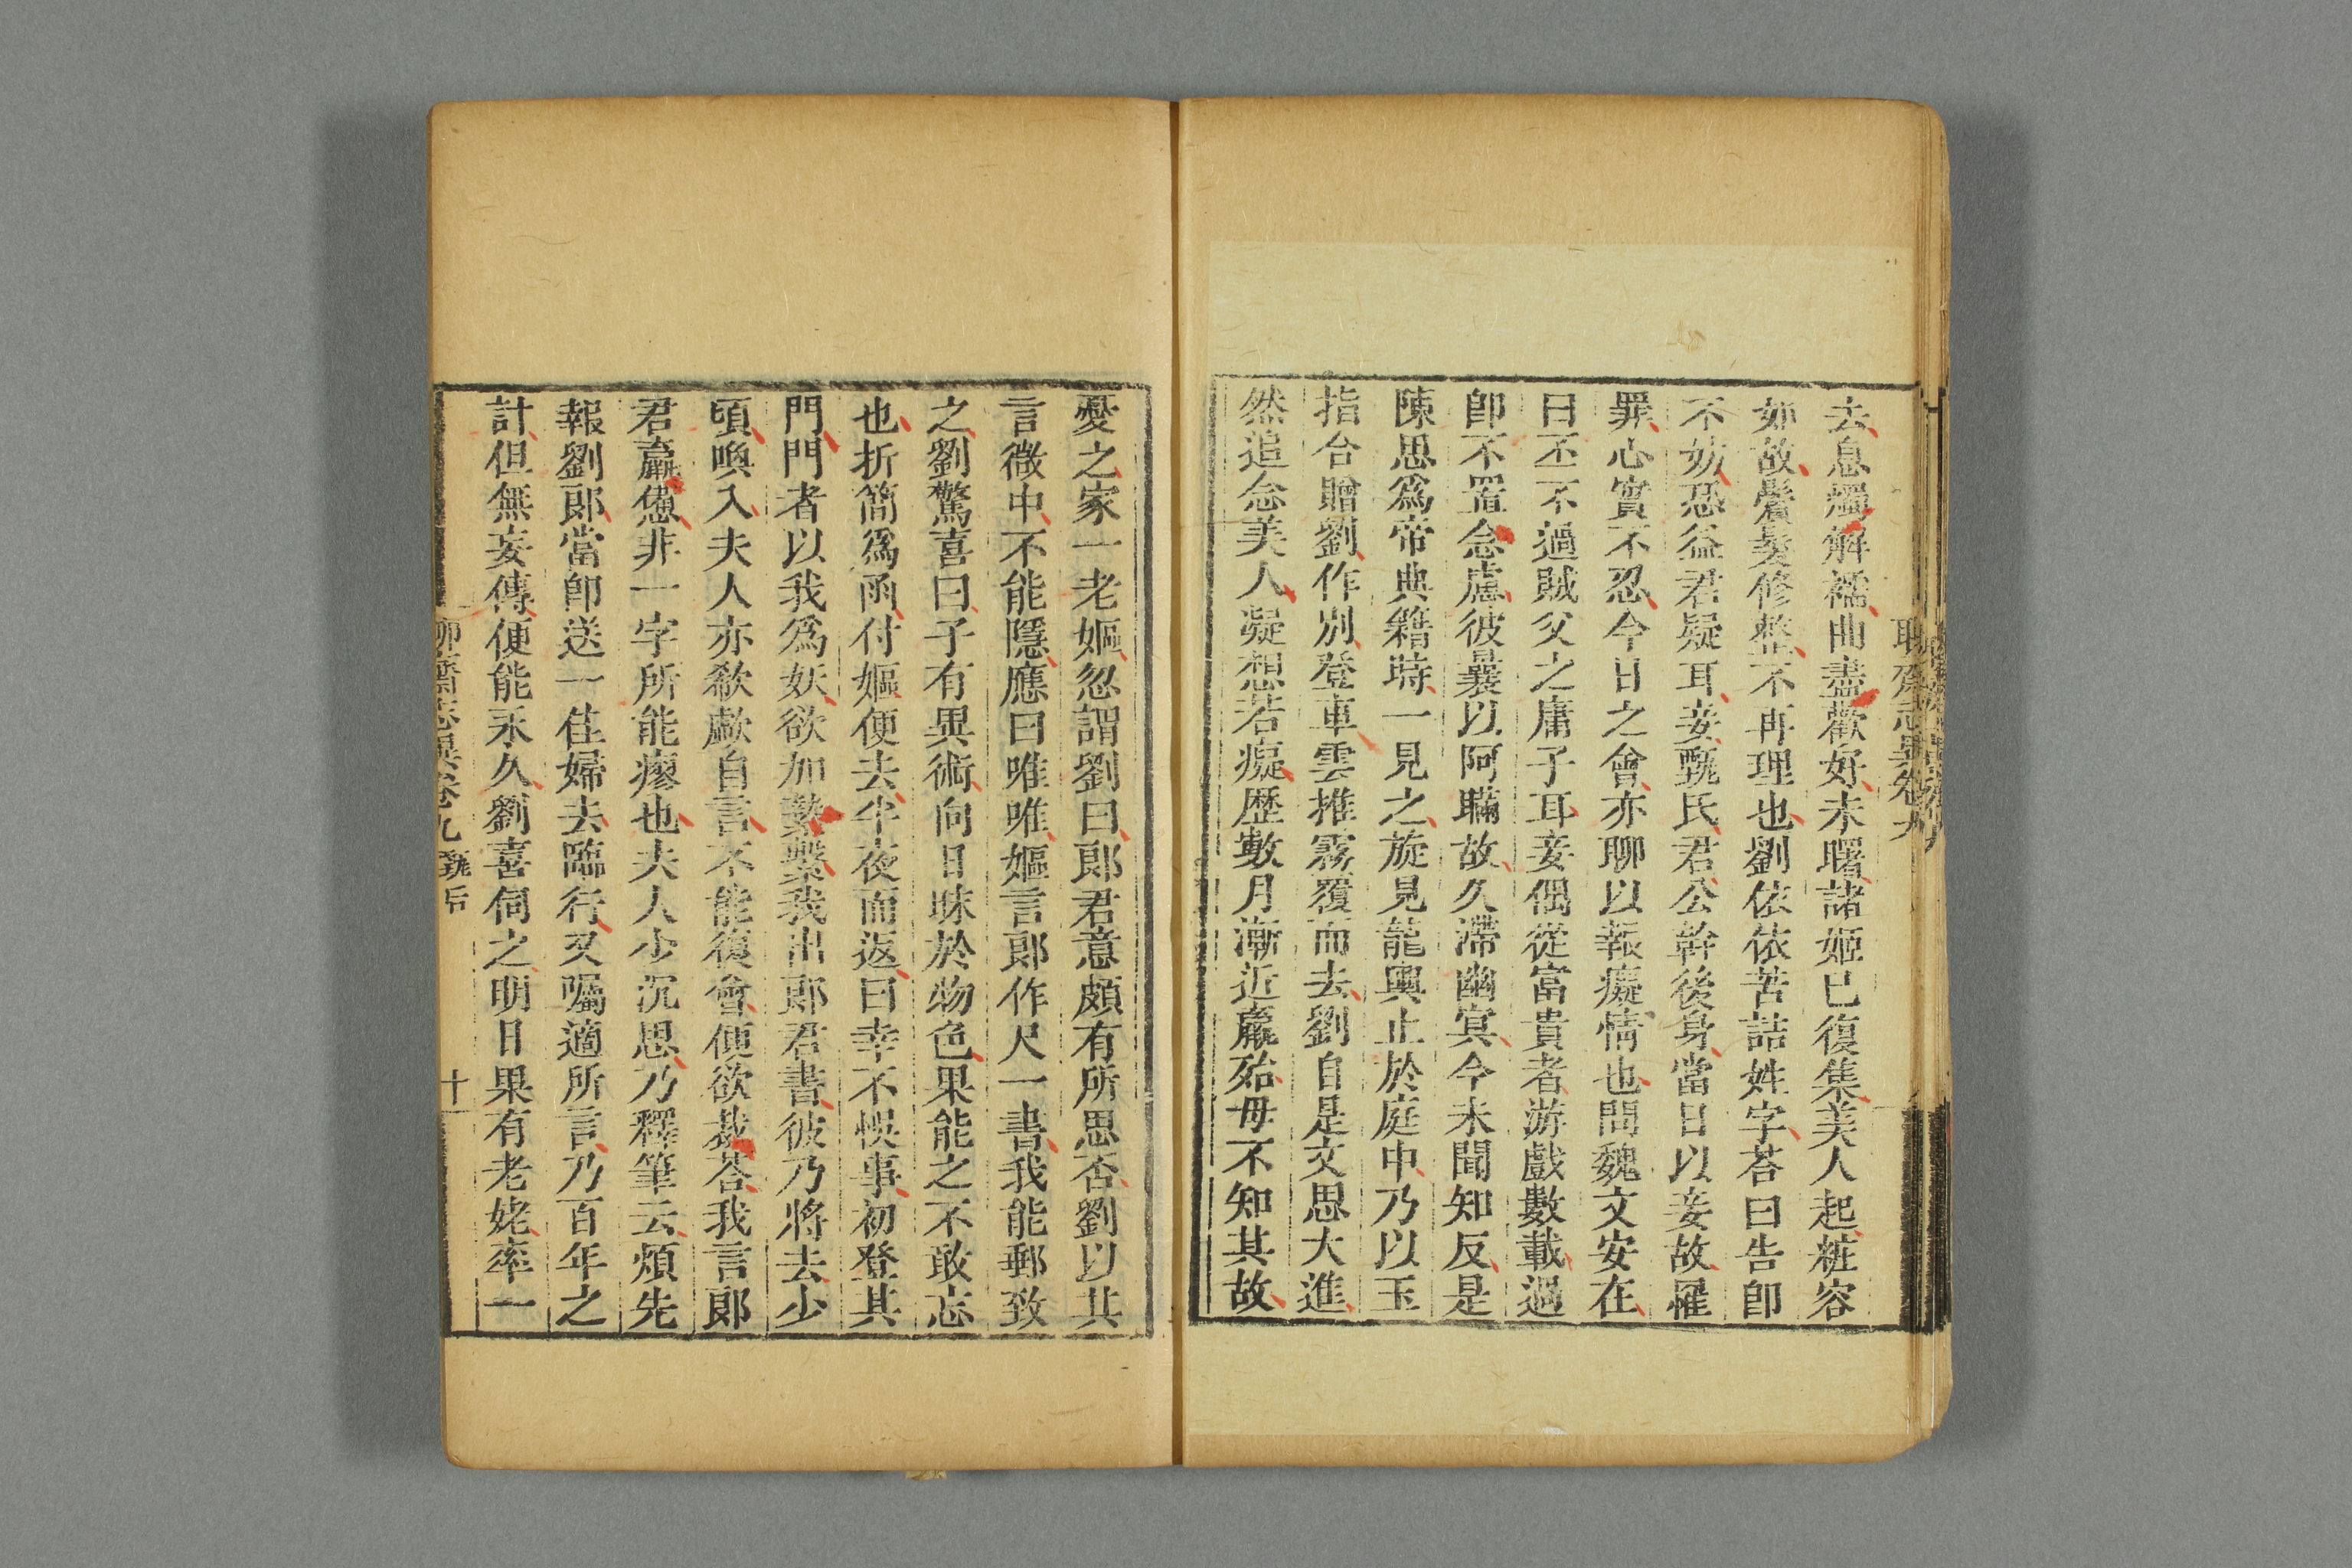 去息燭解襦曲盡歡好未曙諸姬已復集美人起粧容
如故鬢髮修整不再理也劉依依苦詰姓字荅曰告卽
不妨恐益君疑耳妾甄氏君公幹後身當日以妾故罹
罪心實不忍今日之會亦聊以報癡情也問魏文安在
曰丕不過賊父之庸子耳妾偶從富貴者游戲數載過
卽不置念慮彼曩以阿瞞故久滯幽冥今未聞知反是
陳思爲帝典籍時一見之旋見龍輿止於庭中乃以玉
指合贈劉作別登車雲推霧覆而去劉自是文思大進
然追念美人凝想若癡歷數月漸近羸殆母不知其故
憂之家一老嫗忽謂劉曰郞君意頗有所思否劉以其
言微中不能隱應曰唯唯嫗言郞作尺一書我能郵致
之劉驚喜曰子有異術向日昧於物色果能之不敢忘
也折簡爲函付嫗便去半夜而返曰幸不悞事初登其
門門者以我爲妖欲加縶繫我出郞君書彼乃將去少
頃喚入夫人亦欷歔自言不能復會便欲裁荅我言郞
君羸憊非一字所能瘳也夫人少沉思乃釋筆云煩先
報劉郞當卽送一佳婦去臨行又囑適所言乃百年之
計但無妄傳便能永久劉喜伺之明日果有老姥率一
聊齋志異卷九 甄后 十